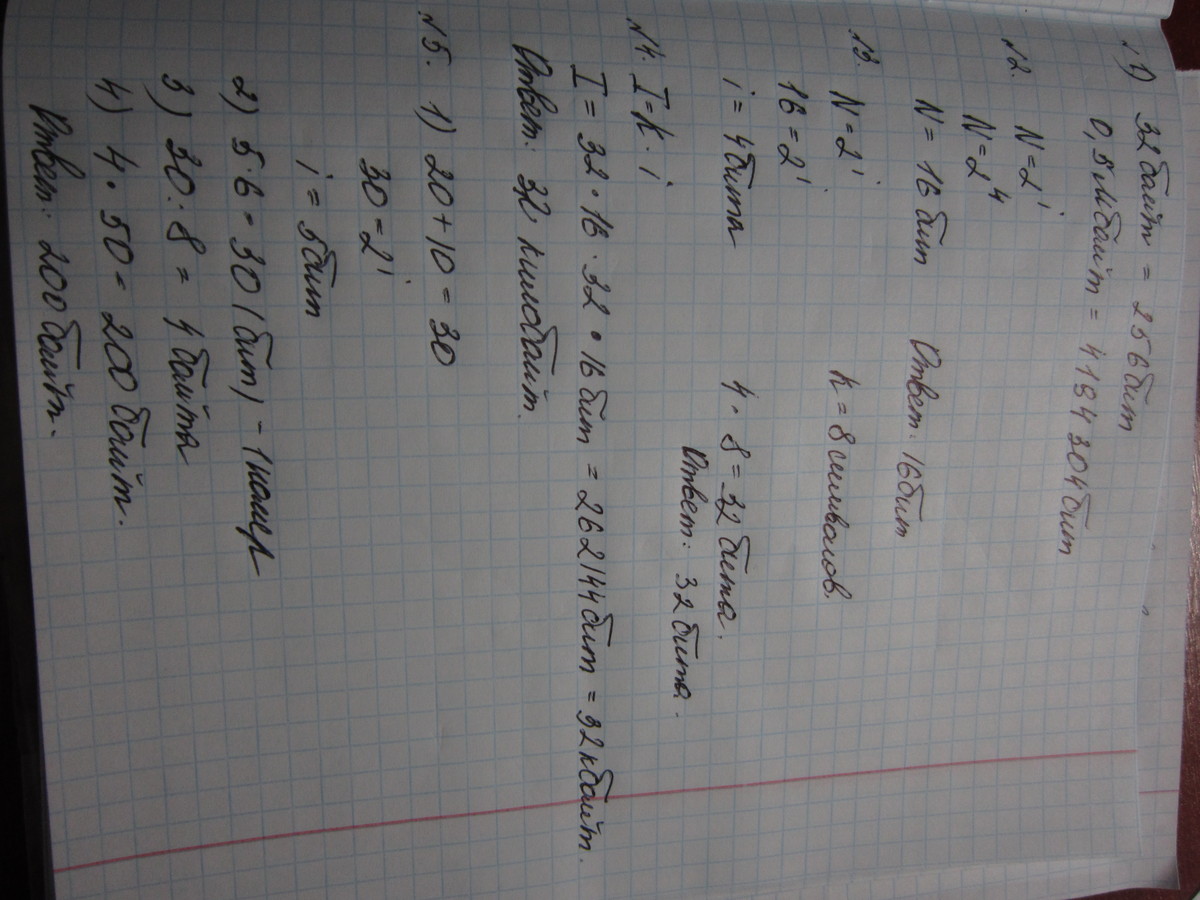 1) 32 байт = 256 бит
0,5 Мбайт = 4194304 бит
№2. N=2^i
N=2^4
N= 16 бит Ответ: 16 бит
№3. N=2^i k=8 символов.
16=2^i
i= 4 бита 4·8=32 бита.
Ответ: 32 бита.
№4. I=k·i
I=32·16·32·16 бит = 262144 бит = 32 кбайт.
Ответ: 32 килобайт.
№5. 1) 20+10=30
30=2^i
i=5 бит
2) 5·6=30 (бит) - 1 номер
3) 30:8= 4 байта
4) 4·50=200 байт.
Ответ: 200 байт.